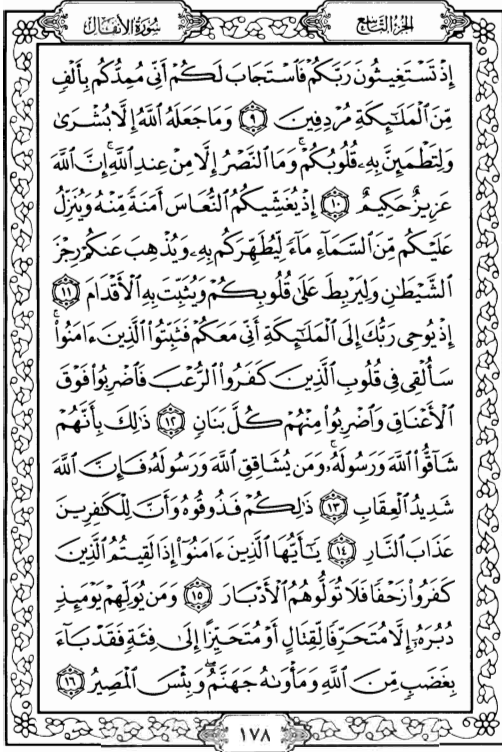 الجزء التاسع
سورة الأنفال
إِذْ تَسْتَغِيثُونَ رَبَّكُمْ فَٱسْتَجَابَ لَكُمْ أَنِّي مُمِدُّكُم بِأَلْفٍ
مِّنَ ٱلْمَلَٰٓئِكَةِ مُرْدِفِينَ ٩ وَمَا جَعَلَهُ ٱللَّهُ إِلَّا بُشْرَىٰ
وَلِتَطْمَئِنَّ بِهِۦ قُلُوبُكُمْ ۚ وَمَا ٱلنَّصْرُ إِلَّا مِنْ عِندِ ٱللَّهِ ۚ إِنَّ ٱللَّهَ
عَزِيزٌ حَكِيمٌ ١٠ إِذْ يُغَشِّيكُمُ ٱلنُّعَاسَ أَمَنَةً مِّنْهُ وَيُنَزِّلُ
عَلَيْكُم مِّنَ ٱلسَّمَآءِ مَآءً لِّيُطَهِّرَكُم بِهِۦ وَيُذْهِبَ عَنكُمْ رِجْزَ
ٱلشَّيْطَٰنِ وَلِيَرْبِطَ عَلَىٰ قُلُوبِكُمْ وَيُثَبِّتَ بِهِ ٱلْأَقْدَامَ ١١
إِذْ يُوحِى رَبُّكَ إِلَى ٱلْمَلَٰٓئِكَةِ أَنِّى مَعَكُمْ فَثَبِّتُوا۟ ٱلَّذِينَ ءَامَنُوا۟ ۚ
سَأُلْقِى فِى قُلُوبِ ٱلَّذِينَ كَفَرُوا۟ ٱلرُّعْبَ فَٱضْرِبُوا۟ فَوْقَ
ٱلْأَعْنَاقِ وَٱضْرِبُوا۟ مِنْهُمْ كُلَّ بَنَانٍ ١٢ ذَٰلِكَ بِأَنَّهُمْ
شَآقُّوا۟ ٱللَّهَ وَرَسُولَهُۥ ۚ وَمَن يُشَاقِقِ ٱللَّهَ وَرَسُولَهُۥ فَإِنَّ ٱللَّهَ
شَدِيدُ ٱلْعِقَابِ ١٣ ذَٰلِكُمْ فَذُوقُوهُ وَأَنَّ لِلْكَٰفِرِينَ
عَذَابَ ٱلنَّارِ ١٤ يَٰٓأَيُّهَا ٱلَّذِينَ ءَامَنُوٓا۟ إِذَا لَقِيتُمُ ٱلَّذِينَ
كَفَرُوا۟ زَحْفًا فَلَا تُوَلُّوهُمُ ٱلْأَدْبَارَ ١٥ وَمَن يُوَلِّهِمْ يَوْمَئِذٍ
دُبُرَهُۥٓ إِلَّا مُتَحَرِّفًا لِّقِتَالٍ أَوْ مُتَحَيِّزًا إِلَىٰ فِئَةٍ فَقَدْ بَآءَ
بِغَضَبٍ مِّنَ ٱللَّهِ وَمَأْوَىٰهُ جَهَنَّمُ ۖ وَبِئْسَ ٱلْمَصِيرُ ١٦
١٧٨